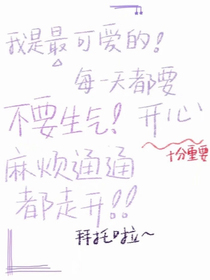 我是最可愛的!
每一天都要
不要生气! 开心
十分重要
麻烦通通
都走开!!
拜托啦~